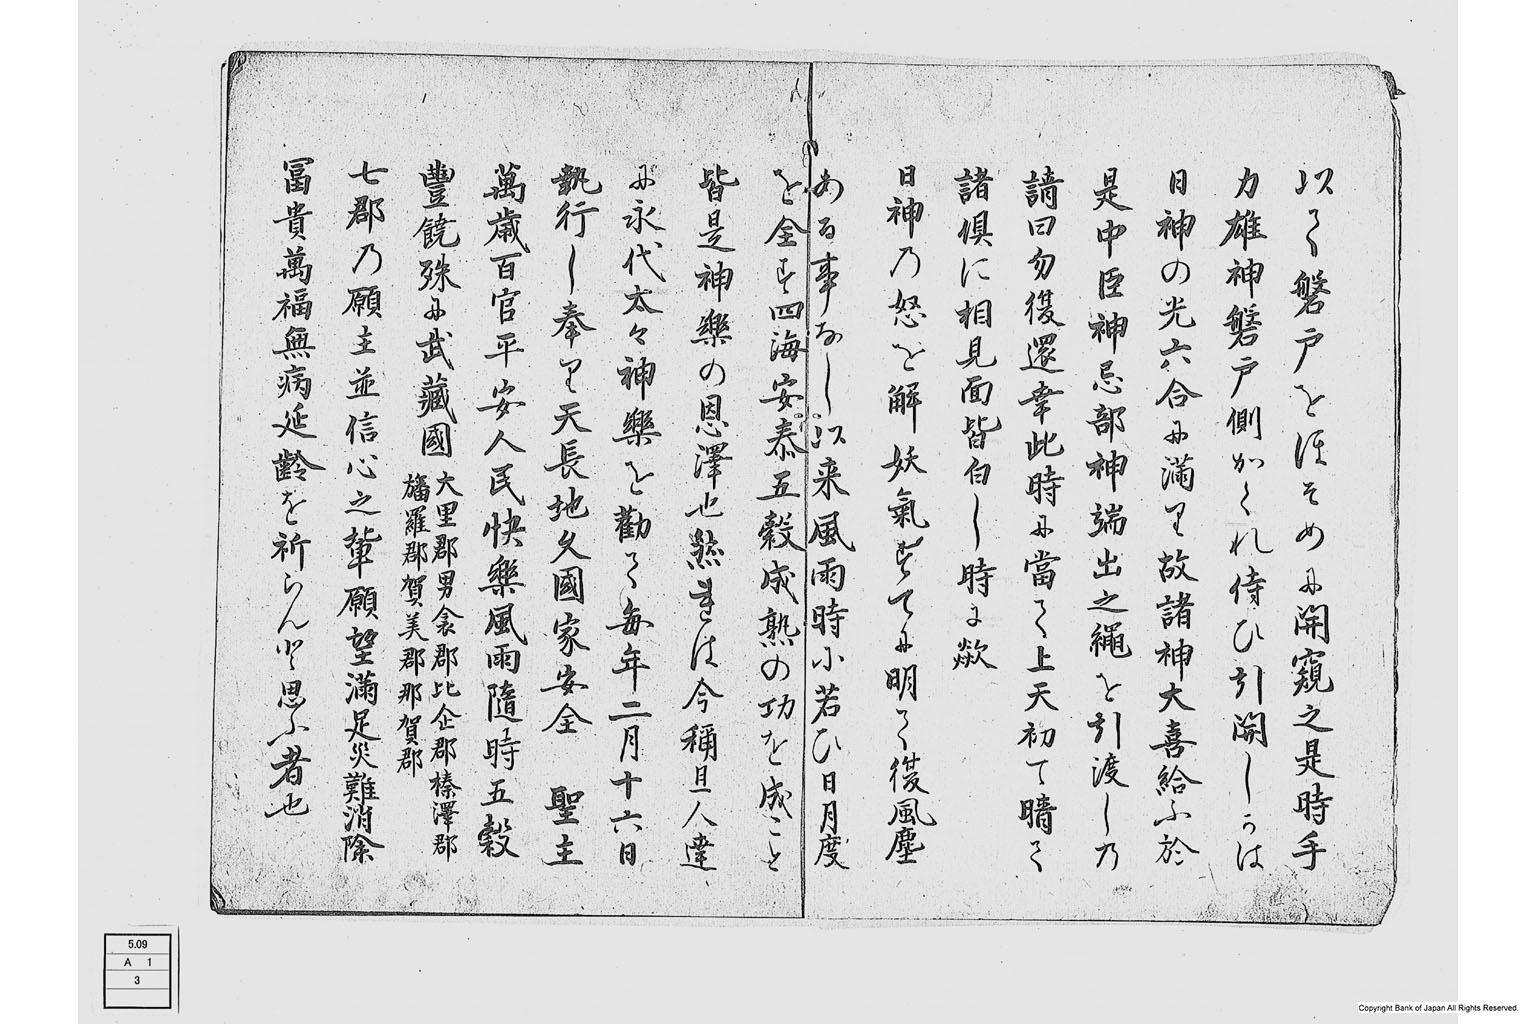 以て磐戸をほそめに開窺之是時手
力雄神磐戸側かくれ侍ひ引開しかは
日神の光六合に滿り故諸神大喜給ふ於
是中臣神忌部神端出之繩を引渡し乃
請曰勿復還幸此時に當て上天初て晴て
諸倶に相見面皆白し時に歟
日神乃怒を解妖氣すてに明て復風塵
ある事なし以来風雨時に若ひ日月度
を全す四海安泰五穀成熟の功を成こと
皆是神樂の恩澤也然れは今稱且人達
に永代太々神樂を勸て毎年二月十六日
執行し奉り天長地久國家安全 聖主
萬歳百官平安人民快樂風雨隨時五穀
豐饒殊に武藏國
大里郡男衾郡比企郡榛澤郡
旛羅郡賀美郡那賀郡
七郡乃願主並信心之輩願望滿足災難消除
冨貴萬福無病延齡を祈らんと思ふ者也
5.09
A 1
3
Copyright Bank of Japan All Rights Reserved.